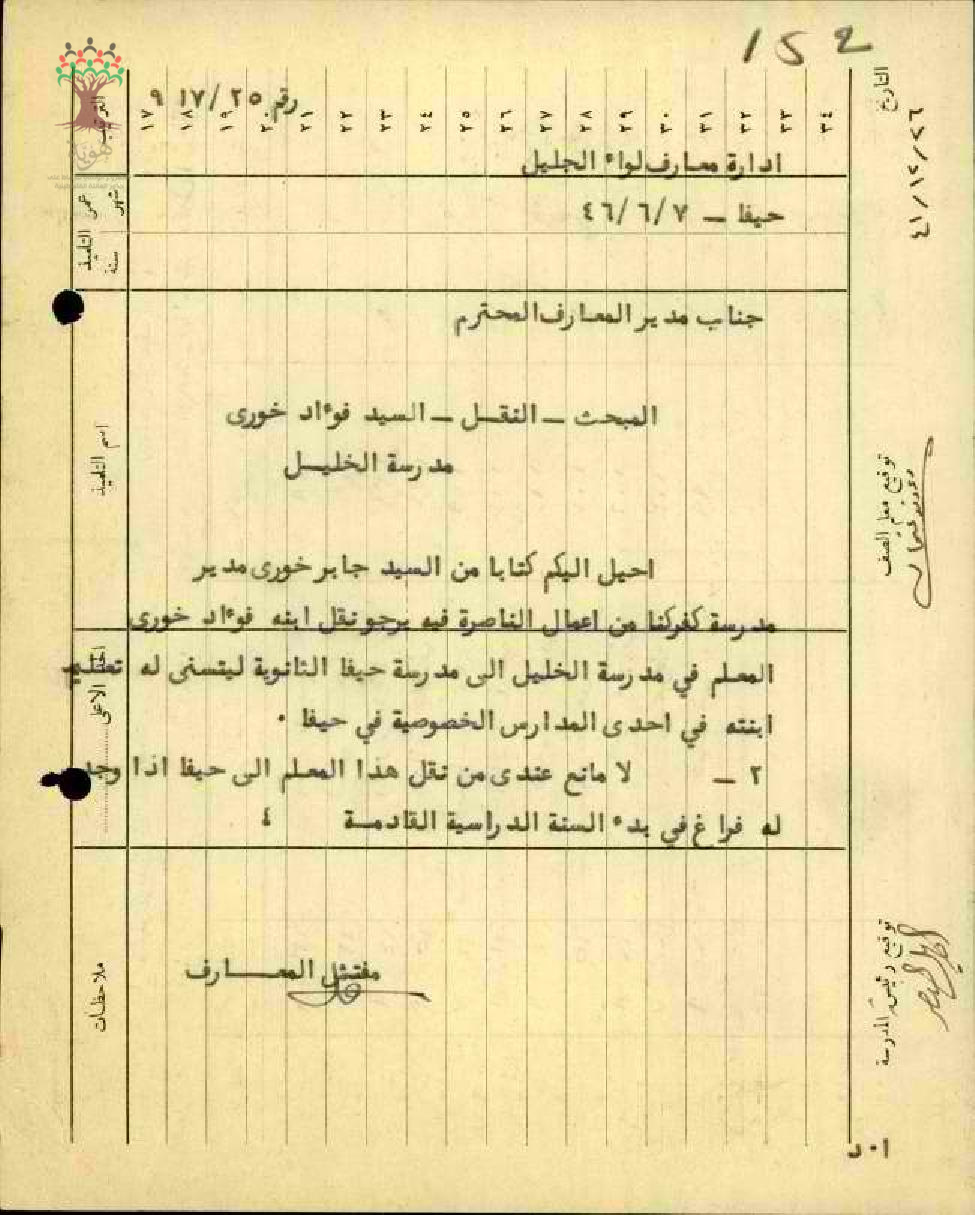 152
رقم ٢٥/ ١٧ ٩
ادارة معارف لواء الجليل
حيفا - ٤٦/٦/٧
جناب مدير المعارف المحترم
المبحث - النقل - السيد فوءاد خورى
مدرسة الخليل
احيل اليكم كتابا من السيد جابر خورى مدير
مدرسة كفركنا من اعمال الناصرة فيه يرجو نقل ابنه فوءاد خورى
المعلم في مدرسة الخليل الى مدرسة حيفا الثانوية ليتسنى له تعليم
ابنته في احدى المدارس الخصوصية في حيفا ٠
٢ - لا مانع عندى من نقل هذا المعلم الى حيفا اذا وجد
له فراغ في بدء السنة الدراسية القادمة ٤
مفتش المعارف
ا ٠ د
الترتيب
١٧ ١٨ ١٩ ٢٠ ٢١ ٢٢ ٢٣ ٢٤ ٢٥ ٢٦ ٢٧ ٢٨ ٢٩ ٣٠ ٣١ ٣٢ ٣٣ ٣٤
عمر التلميذ
شهر
سنة
اسم التلميذ
الاعلى
ملاحظات
التاريخ
٤١/١٢/٢٦
توقيع معلم الصف
توقيع رئيس المدرسة
هوية